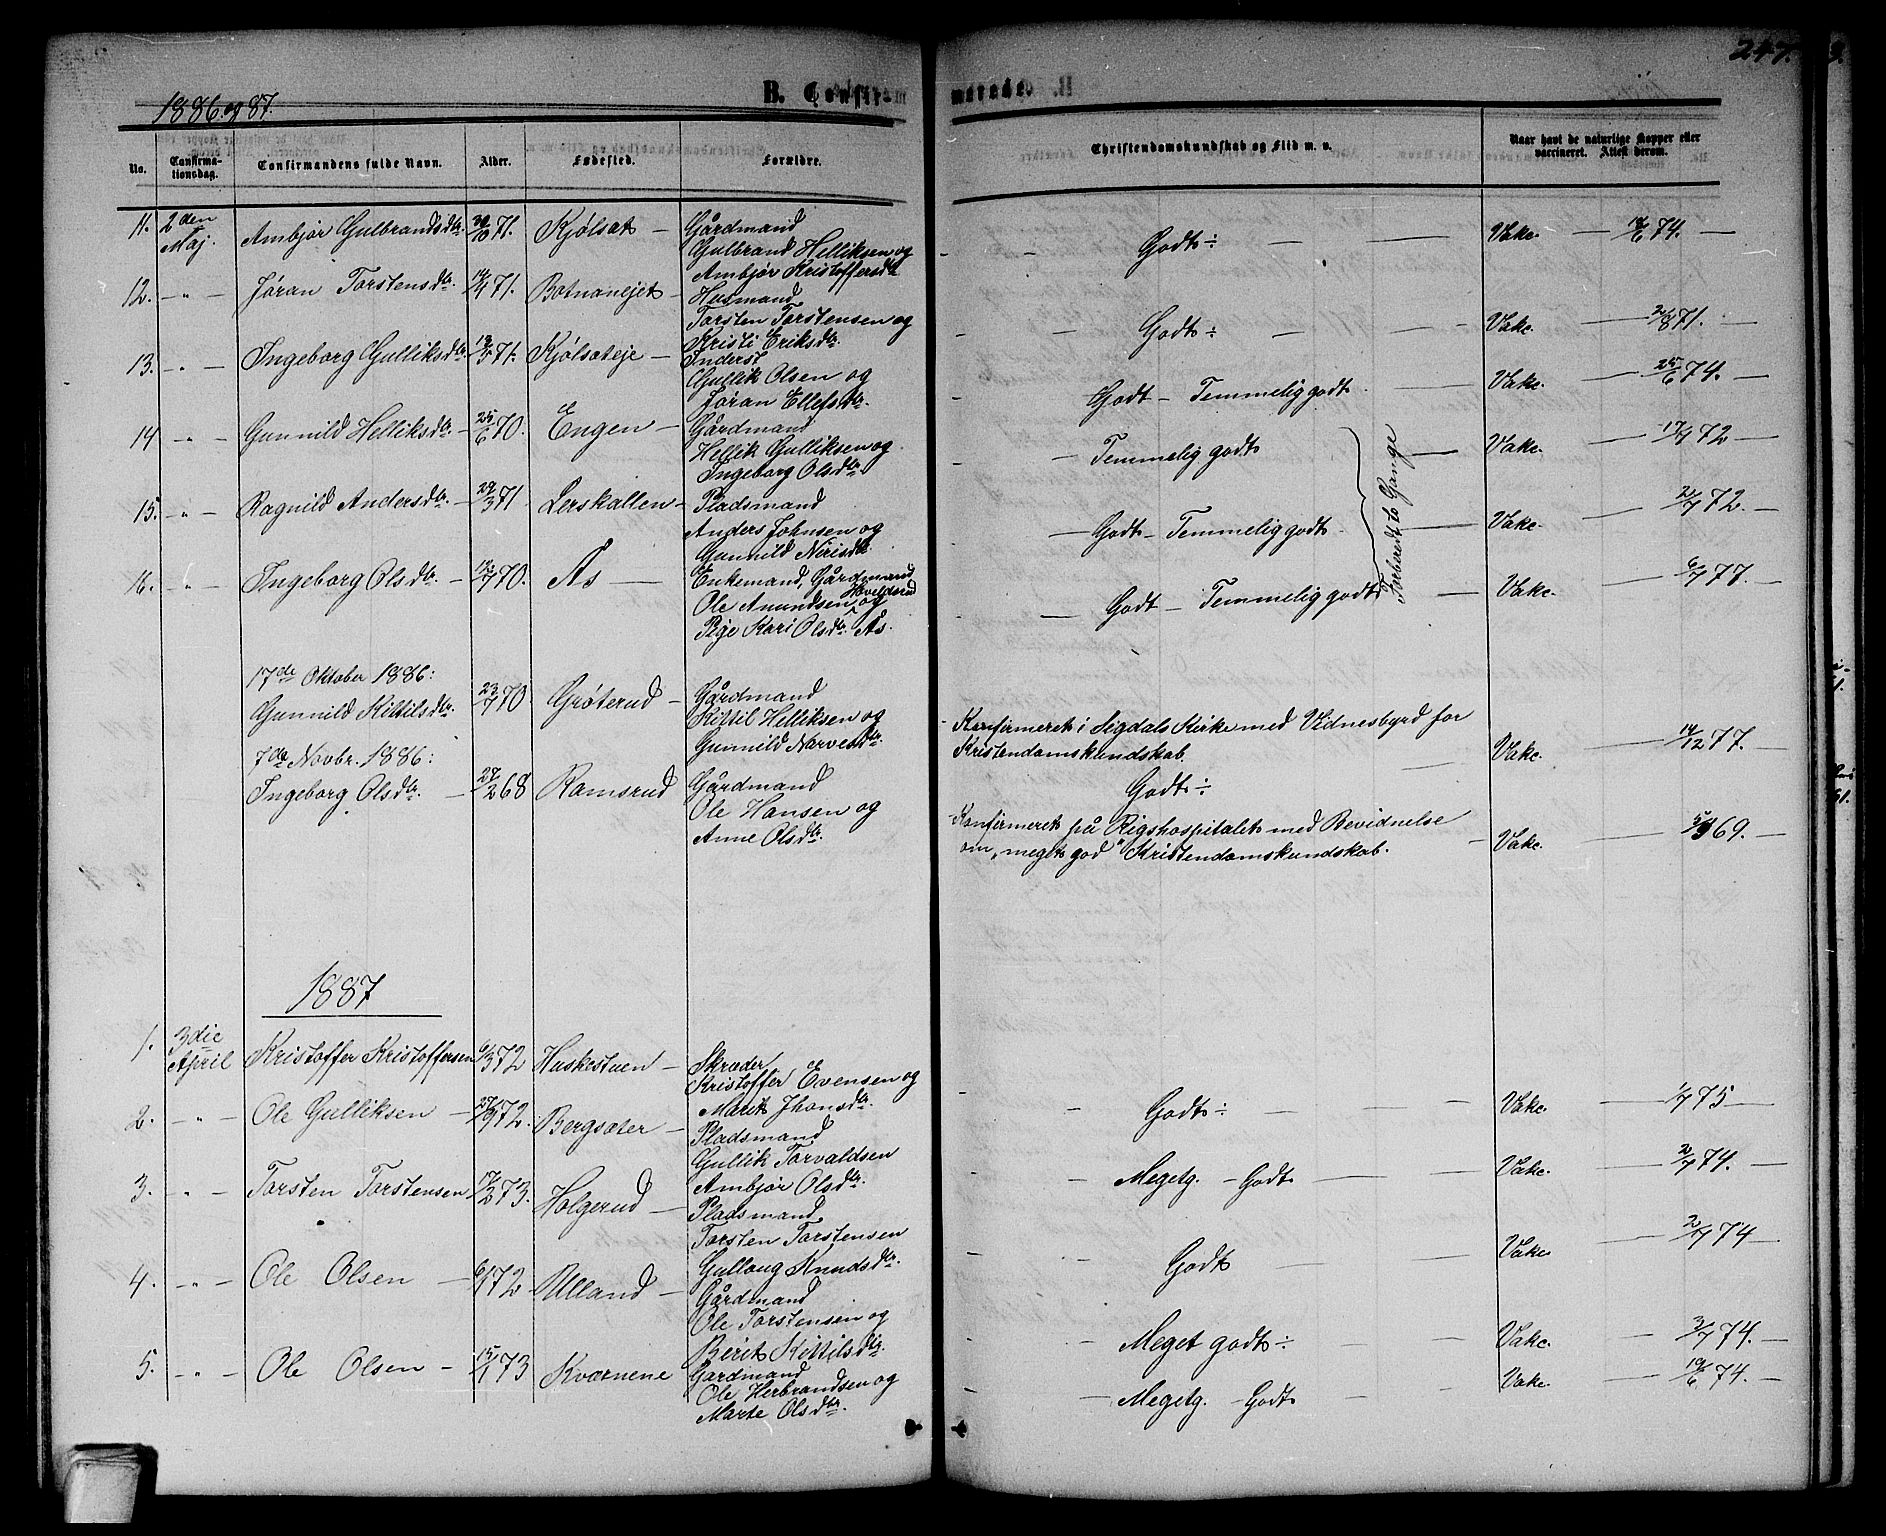 247.
1886 og 87.
B. Confirmerede.
No. Confirmationsdag. Confirmandens fulde Navn. Alder. Fødested. Forældre. Christendomskundskab og Flid m. v. Naar havt de naturlige Kopper eller vaccineret. Attest derom.
11. 2den Maj. Ambjør Gulbrandsdtr. 30/10 71. Kjølsat — Gårdmand
Gulbrand Helliksen og
Ambjør Kristoffersdtr
Godt ÷ — Vakc. — 18/6 74. —
12. — " — Jøran Torstensdtr. 14/4 71. Botnanejet — Husmand
Torsten Torstensen og
Kristi Eriksdtr.
— Godt ÷ — Vakc. — 2/8 71. —
13. — " — Ingeborg Gulliksdtr. 13/5 71. Kjølsateje — Inderst
Gullik Olsen og
Jøran Ellefsdtr.
— Godt — Temmelig godt — Vakc. — 25/6 74. —
14 — " — Gunnild Helliksdtr. — 25/6 70. Engen — Gårdmand
Hellik Gulliksen og
Ingeborg Olsdtr
— Temmelig godt — Vakc. — 17/7 72 —
15. — " — Ragnild Andersdtr. — 29/3 71 Lerskallen — Pladsmand
Anders Johnsen og
Gunnild Nirisdtr.
— Godt — Temmelig godt — Vakc. — 2/7 72. —
16. — " — Ingeborg Olsdtr. — 12/7 70. Ås — Enkemand, Gårdmand
Ole Amundsen Hoveldsrud og
Pige Kari Olsdtr. Ås.
— Godt — Temmelig godt — Vakc. — 6/7 77. —
Forberedt to Gange
17de Oktober 1886:
Gunnild Kittilsdtr. 23/7 70 Grøterud — Gårdmand
Kittil Helliksen og
Gunnild Narvesdtr.
- Konfirmeret i Sigdals Kirke med Vidnesbyrd for
Kristendomskundskab.
Godt ÷
— Vakc. — 14/12 77. —
7de Novbr. 1886:
Ingeborg Olsdtr. — 27/2 68 Ramsrud Gårdmand
Ole Hansen og
Anne Olsdtr.
- Konfirmeret på Rigshospitalet med Bevidnelse
om „meget god" Kristendomskundskab.
— Vakc. — 69. —
1887
1. 3die April Kristoffer Kristoffersen 6/3 72 Haskestuen — Skræder
Kristoffer Evensen og
Marit Jhonsdtr.
- Godt ÷ — Vakc. — 1/7 75 —
2. — " — Ole Gulliksen — 72. Bergsæter — Pladsmand
Gullik Torvaldsen
Ambjør Olsdtr.
— Megetg. — Godt — Vakc. — 2/7 74. —
3. — " — Torsten Torstensen 17/2 73. Holgerud — Pladsmand
Torsten Torstensen
Gullaug Knudsdtr.
Godt — Vakc. — 2/7 74 —
4. — " — Ole Olsen — 6/1 72 Ulland — Gårdmand
Ole Torstensen og
Berit Kittilsdtr.
- Meget godt ÷ — Vakc. — 3/7 74. —
5. — " — Ole Olsen — 15/1 73 Kværnene Gårdmand
Ole Herbrandsen og
Marte Olsdtr.
— Megetg. — Godt — Vakc. — 19/6 74. —